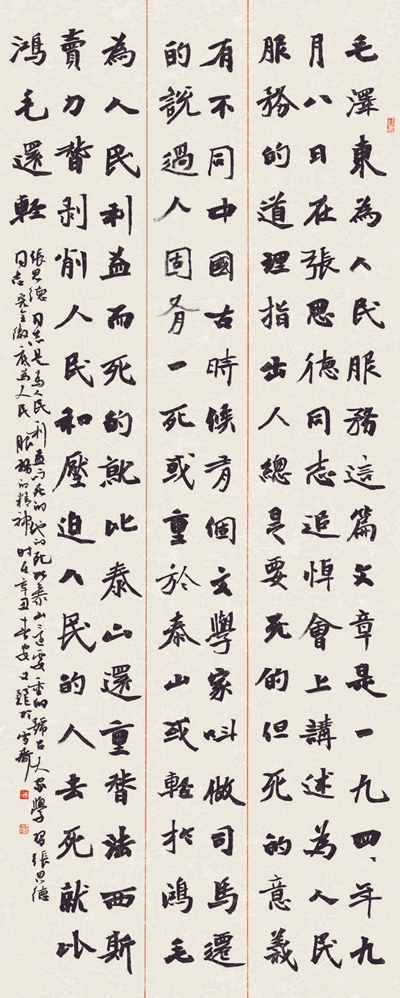 毛澤東為人民服務這篇文章是一九四、年九
月八日在張思德同志追悼會上講述為人民
服務的道理指出人總是要死的但死的意義
有不同中國古時候有個文學家叫做司馬遷
的說過人固有一死或重於泰山或輕於鴻毛
為人民利益而死的就比泰山還重替法西斯
賣力替剥削人民和壓迫人民的人去死就比
鴻毛還輕
張思德同志是為人民利益而死的他的死比泰山還要重的號召人家學習張思德
同志完全徹底為人民服務的精神時在辛丑春